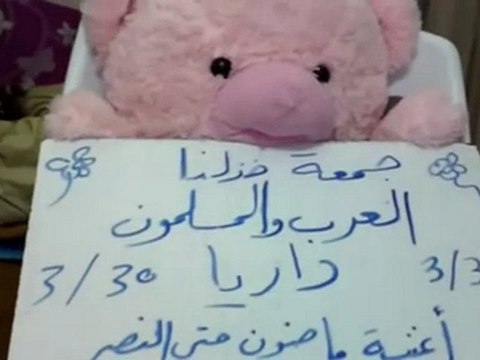 جمعة خذلنا
العرب والمسلمون
3/30 داريا 3/3
ماضون حتى النصر